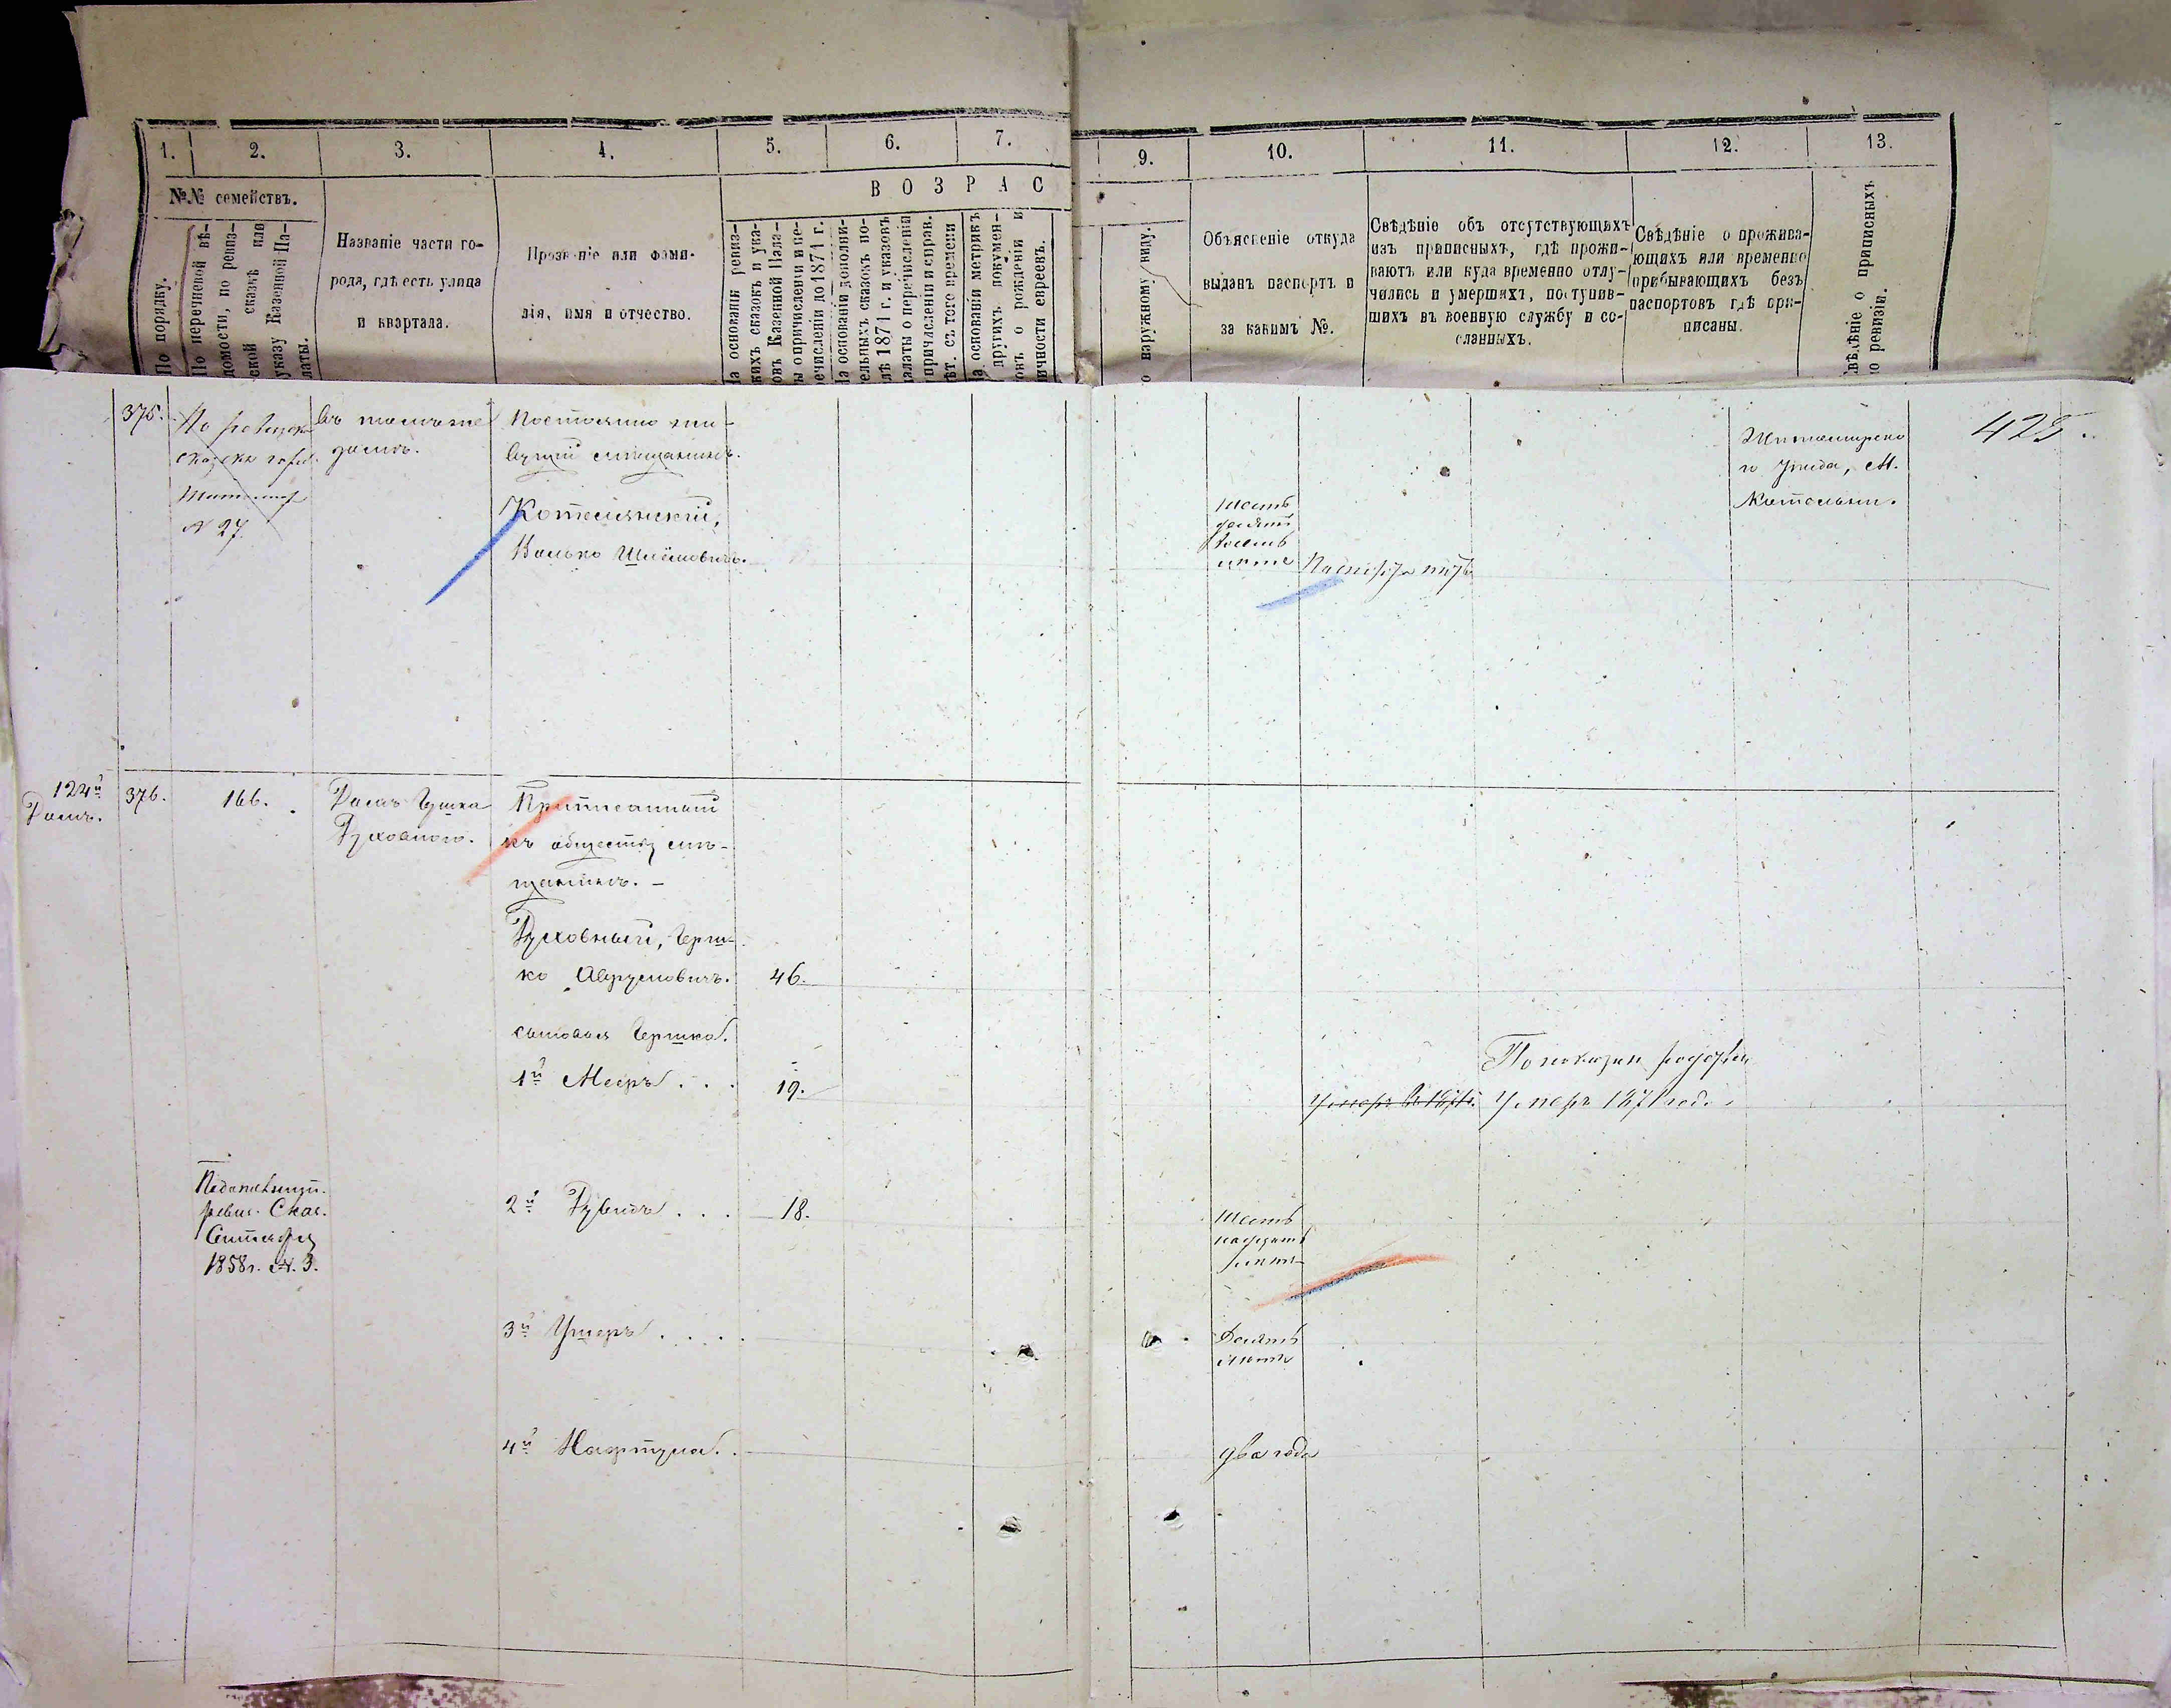 1.
2.
3.
4.
5.
6.
7.
9.
10.
11.
12.
13.
№№ семействъ.
По порядку.
По перечневой вѣ-
домости, по ревиз-
ской сказкѣ или
указу Казенной Па-
латы.
Названіе части го-
рода, гдѣ есть улица
и квартала.
Прозваніе или фами-
лія, имя и отчество.
ВОЗРАС
На основаніи ревиз-
скихъ сказокъ и ука-
зовъ Казенной Пала-
ты о причисленіи и пе-
речисленіи до 1871 г.
На основаніи дополни-
тельныхъ сказокъ по-
слѣ 1871 г. и указовъ
Палаты о перечисленіи
и причисленіи и справ.
лѣт. съ того времени
На основаніи метрикъ
и другихъ докумен-
товъ о рожденіи и
личности евреевъ.
по наружному виду.
Объясненіе откуда
выданъ паспортъ и
за какимъ №.
Свѣдѣніе объ отсутствующихъ
изъ приписныхъ, гдѣ прожи-
ваютъ или куда временно отлу-
чились и умершихъ, поступив-
шихъ въ военную службу и со-
сланныхъ.
Свѣдѣніе о прожива-
ющихъ или временно
прибывающихъ безъ
паспортовъ гдѣ при-
писаны.
Свѣдѣніе о приписныхъ
по ревизіи.
375.
По ревизск.
сказкѣ
№ 27
въ томъ же
домѣ.
Постоянно жи-
вущій мѣщанинъ.
Котелянскій,
Волько Шлёмовичъ.
шесть
десятъ
восемь
лѣтъ
Паспорта нѣтъ
Житомирска
го уѣзда, М.
Котельни.
428.
124й
Домъ.
376.
166.
Домъ Гершка
Духовнаго.
Приписанный
къ обществу мѣ-
щанинъ. —
Духовный, Герш-
ко Аврумовичъ.
46.
сыновья Гершка.
1й Мееръ . . .
19.
Умеръ въ 1871г.
По показан.
Умеръ 1871 года
Ревиз. Сказ.
1858 г. № 3.
2й Рувинъ . . .
18.
Шесть
надцать
лѣтъ
3й Ушеръ . . . .
Девять
лѣтъ
4й Нафтула . .
два года